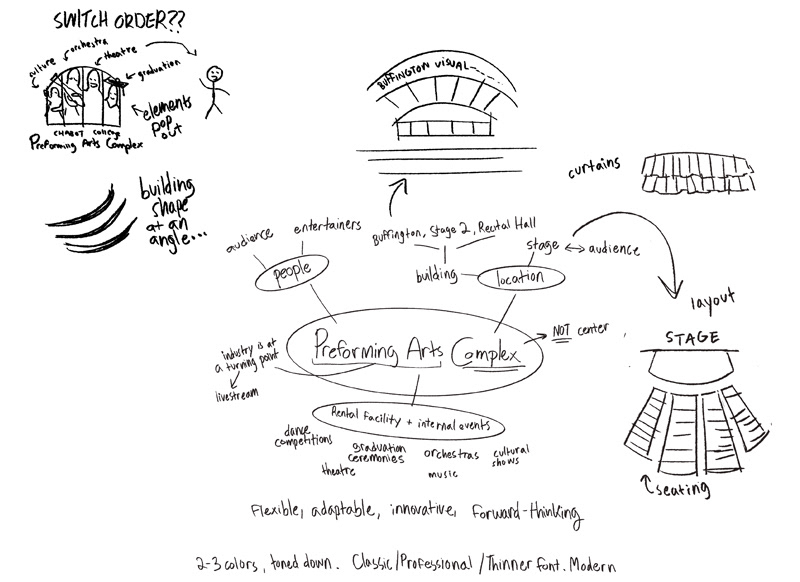 SWITCH ORDER??
culture
orchestra
theatre
graduation
elements
pop
out
CHABOT College
Preforming Arts Complex
building
shape
at an
angle...
BUFFINGTON VISUAL
curtains
audience
entertainers
people
Buffington, Stage 2, Recital Hall
building
stage ↔ audience
location
layout
STAGE
seating
Preforming Arts Complex
NOT center
industry is at
a turning point
livestream
Rental Facility + internal events
dance
competitions
graduation
ceremonies
theatre
orchestras
music
cultural
shows
Flexible, adaptable, innovative, forward-thinking
2-3 colors, toned down. Classic/Professional/Thinner font. Modern